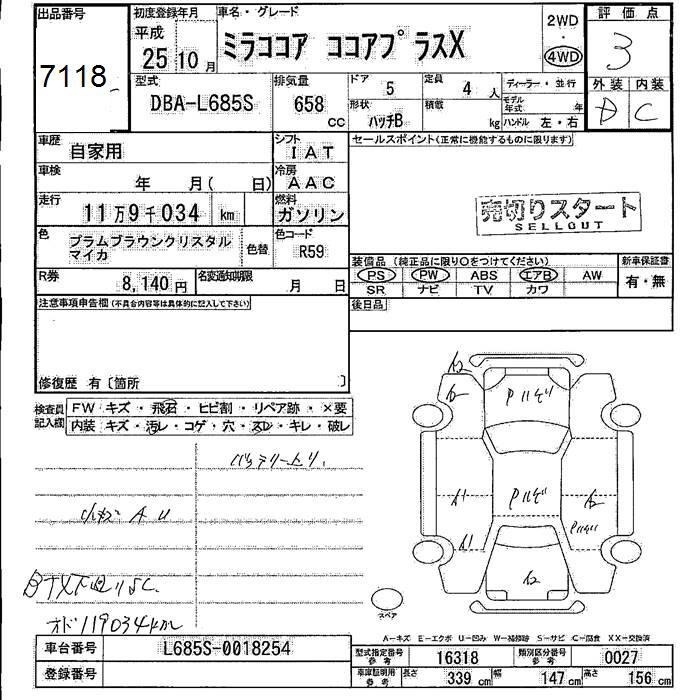 出品番号
7118
初度登録年月
平成
25年10月
車名・グレード
ミラココア ココアプラスX
2WD
・
4WD
評価点
3
型式
DBA-L685S
排気量
658 CC
ドア
5
定員
4 人
形状
ハッチB
積載
kg
ディーラー・並行
モデル年式 年
ハンドル 左・右
外装 内装
D C
車歴
自家用
シフト
IAT
車検
年 月( 日)
冷房
AAC
走行
11万9千034 km
燃料
ガソリン
色
プラムブラウンクリスタル
マイカ
色替
色コード
R59
R券
8,140円
名変通知期限
月 日
セールスポイント(正常に機能するものに限ります)
売切りスタート
SELLOUT
装備品(純正品に限り○をつけてください)
PS PW ABS エアB AW
SR ナビ TV カワ
新車保証書
有・無
後日品
注意事項申告欄(不具合内容等は具体的に記入して下さい)
修復歴 有〔箇所 〕
検査員
記入欄
FW キズ・飛石・ヒビ割・リペア跡・×要
内装 キズ・汚レ・コゲ・穴・スレ・キレ・破レ
バッテリー上り.
小キズ A U
オド 119034km
A2
A1
A1
A2
A2
スペア
A-キズ E-エクボ U-凹み W-補修跡 S-サビ C-腐食 XX-交換済
車台番号
L685S-0018254
登録番号
型式指定番号
参考
16318
類別区分番号
参考
0027
車庫証明用
参考
長さ 339 cm 幅 147 cm 高さ 156 cm